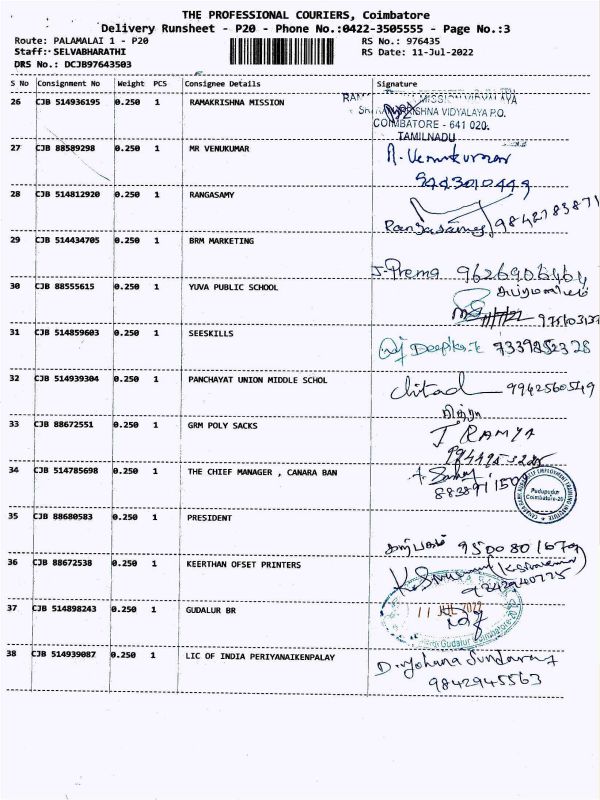 THE PROFESSIONAL COURIERS, Coimbatore
Delivery Runsheet - P20 - Phone No.:0422-3505555 - Page No.:3
Route: PALAMALAI 1 - P20
RS No.: 976435
Staff: SELVABHARATHI
RS Date: 11-Jul-2022
DRS No.: DCJB97643503
S No Consignment No Weight PCS Consignee Details Signature
26 CJB 514936195 0.250 1 RAMAKRISHNA MISSION
VIDYALAYA P.O.
COIMBATORE - 641 020.
TAMILNADU
27 CJB 88589298 0.250 1 MR VENUKUMAR
9443010449
28 CJB 514812920 0.250 1 RANGASAMY
Rangasamy 9842783871
29 CJB 514434705 0.250 1 BRM MARKETING
J. Prema 9626906464
30 CJB 88555615 0.250 1 YUVA PUBLIC SCHOOL
31 CJB 514859603 0.250 1 SEESKILLS
Deepika 7339852328
32 CJB 514939304 0.250 1 PANCHAYAT UNION MIDDLE SCHOL
9942560549
33 CJB 88672551 0.250 1 GRM POLY SACKS
J RAMYA
34 CJB 514785698 0.250 1 THE CHIEF MANAGER , CANARA BAN
Pudupudur
Coimbatore-20
35 CJB 88680583 0.250 1 PRESIDENT
36 CJB 88672538 0.250 1 KEERTHAN OFSET PRINTERS
37 CJB 514898243 0.250 1 GUDALUR BR
11 JUL 2022
Gudalur Coimbatore
38 CJB 514939087 0.250 1 LIC OF INDIA PERIYANAIKENPALAY
9842945563